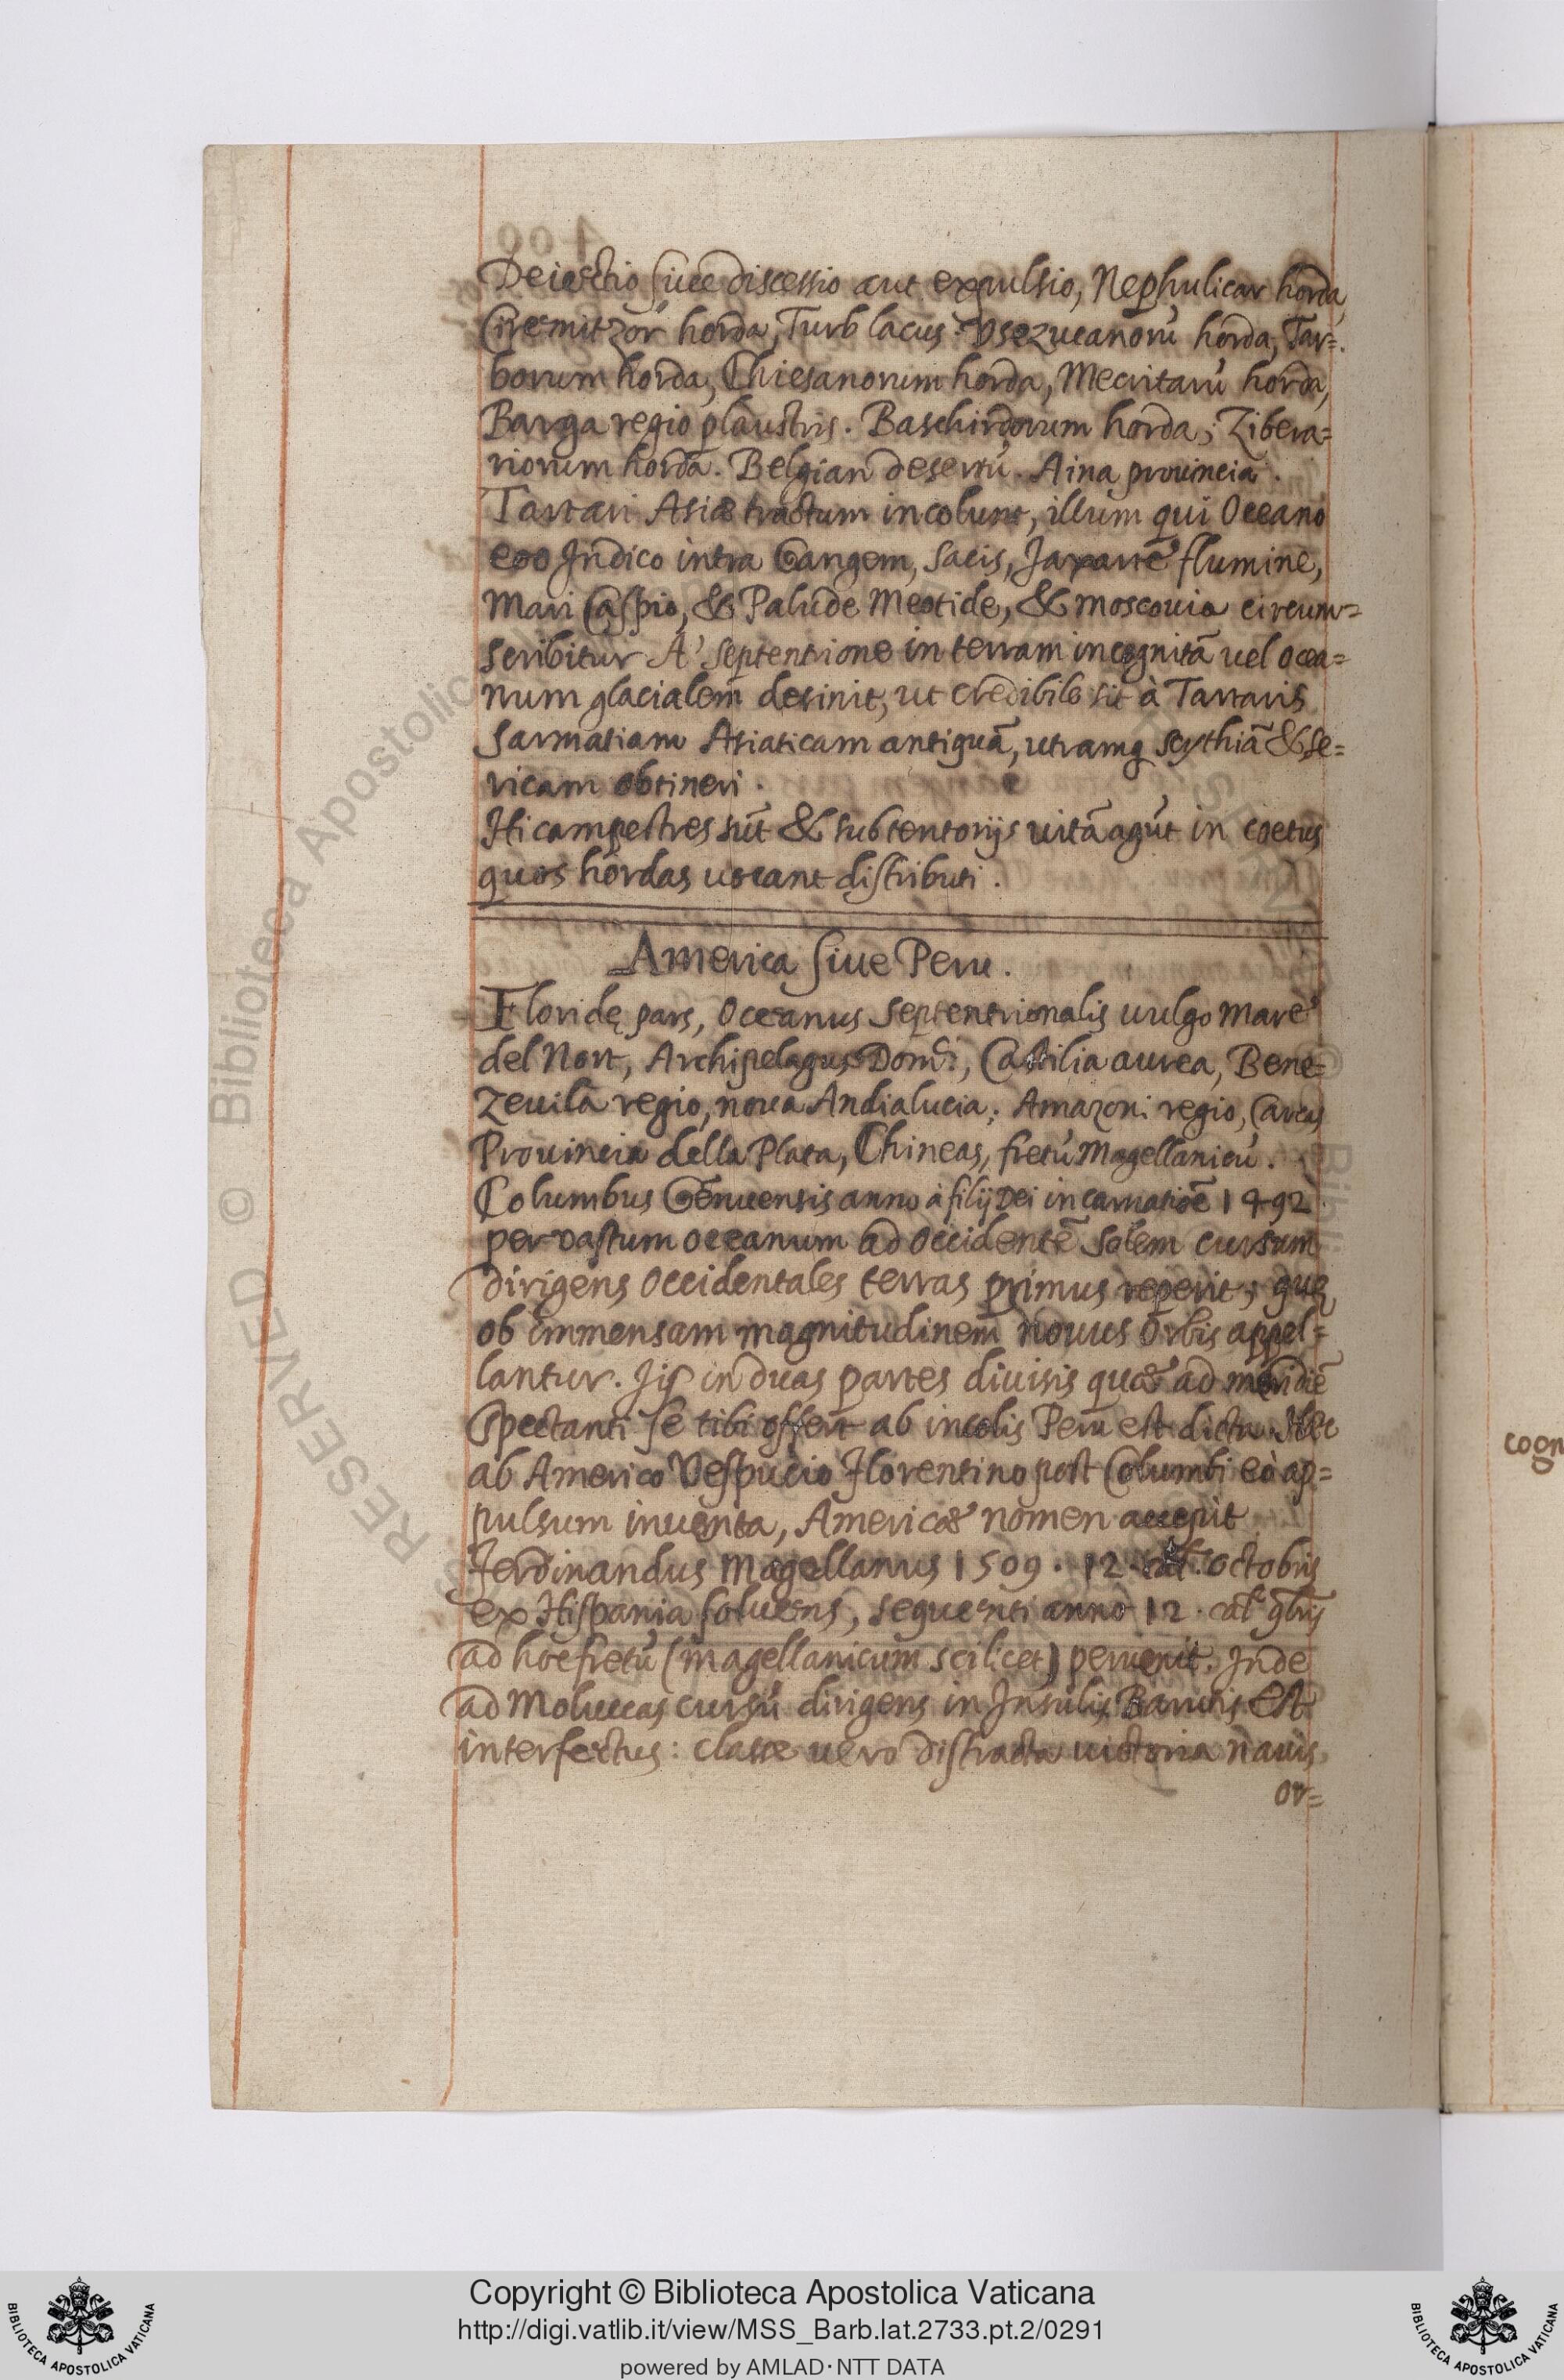 Deiectio siue discessio aut expulsio, Nephulicar horda,
Ciremitzor̃ horda, Turb lacus. Vsezucanorũ horda, Tar=
borum horda, Chiesanorum horda, Mecritarũ horda,
Barga regio plaustris. Baschirdorum horda, Zibera=
riorum horda. Belgian desertũ. Aina prouincia.
Tartari Asiæ tractum incolunt, illum qui Oceano
eoo Indico intra Gangem, Sacis, Jaxarte flumine,
Mari Caspio, & Palude Meotide, & Moscouia circum=
scribitur A' Septentrione in terram incognitã uel ocea=
num glacialem desinit, ut credibile sit à Tartaris
Sarmatiam Asiaticam antiquã, utramq Scythiã & Se=
ricam obtineri.
Hi campestres sũt & sub tentorijs uitã agũt in coetus
quos hordas uocant distributi.
America siue Peru.
Floridę pars, Oceanus Septentrionalis uulgo Mare
del Nort, Archipelagus Domĩ, Castilia aurea, Bene=
zeuila regio, noua Andialucia, Amazoni regio, Caras
Prouincia della Plata, Chineas, fretũ Magellanicũ.
Columbus Genuensis anno à filij Dei incarnatiõe 1492
per vastum oceanum ad occidentẽ Solem cursum
dirigens Occidentales terras primus reperit, quę
ob immensam magnitudinem nouus Orbis appel=
lantur. Jis in duas partes diuisis quæ ad meridiẽ
spectanti se tibi offert ab incolis Peru est dicta. Hæc
ab Americo Vespucio Florentino post Columbi eò ap=
pulsum inuenta, Americæ nomen accepit
Ferdinandus Magellanus 1509. 12. cal. Octobris
ex Hispania soluens, sequenti anno 12. cal. 9bris
ad hoc fretũ (Magellanicum scilicet) peruenit. Inde
ad Moluccas cursũ dirigens in Insulis Barutis est
interfectus: classe uero distracta uictoria nauis
or=
cogn
RESERVED © Biblioteca Apostolica
Copyright © Biblioteca Apostolica Vaticana
http://digi.vatlib.it/view/MSS_Barb.lat.2733.pt.2/0291
powered by AMLAD·NTT DATA
BIBLIOTECA APOSTOLICA VATICANA
BIBLIOTECA APOSTOLICA VATICANA